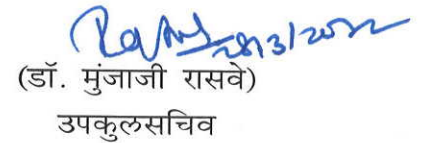 28/3/2022
(डॉ. मुंजाजी रासवे)
उपकुलसचिव